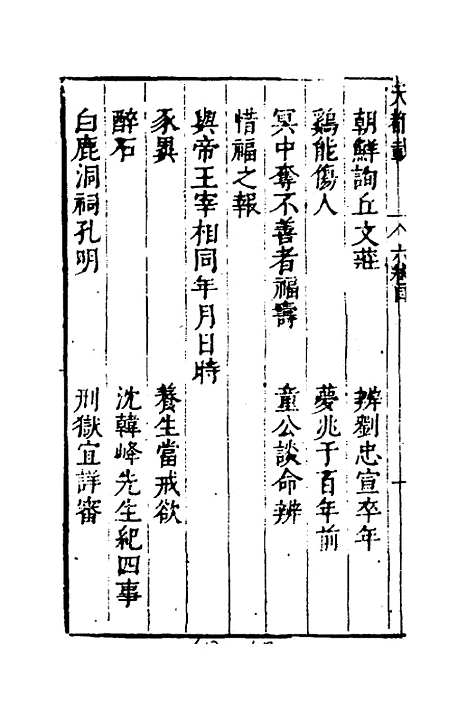 天都載
六卷目
十
朝鮮詢丘文莊　辨劉忠宣卒年
鷄能傷人　夢兆于百年前
冥中奪不善者福壽　童公談命辨
惜福之報
與帝王宰相同年月日時
豕異　養生當戒欲
醉石　沈韓峰先生紀四事
白鹿洞祠孔明　刑獄宜詳審